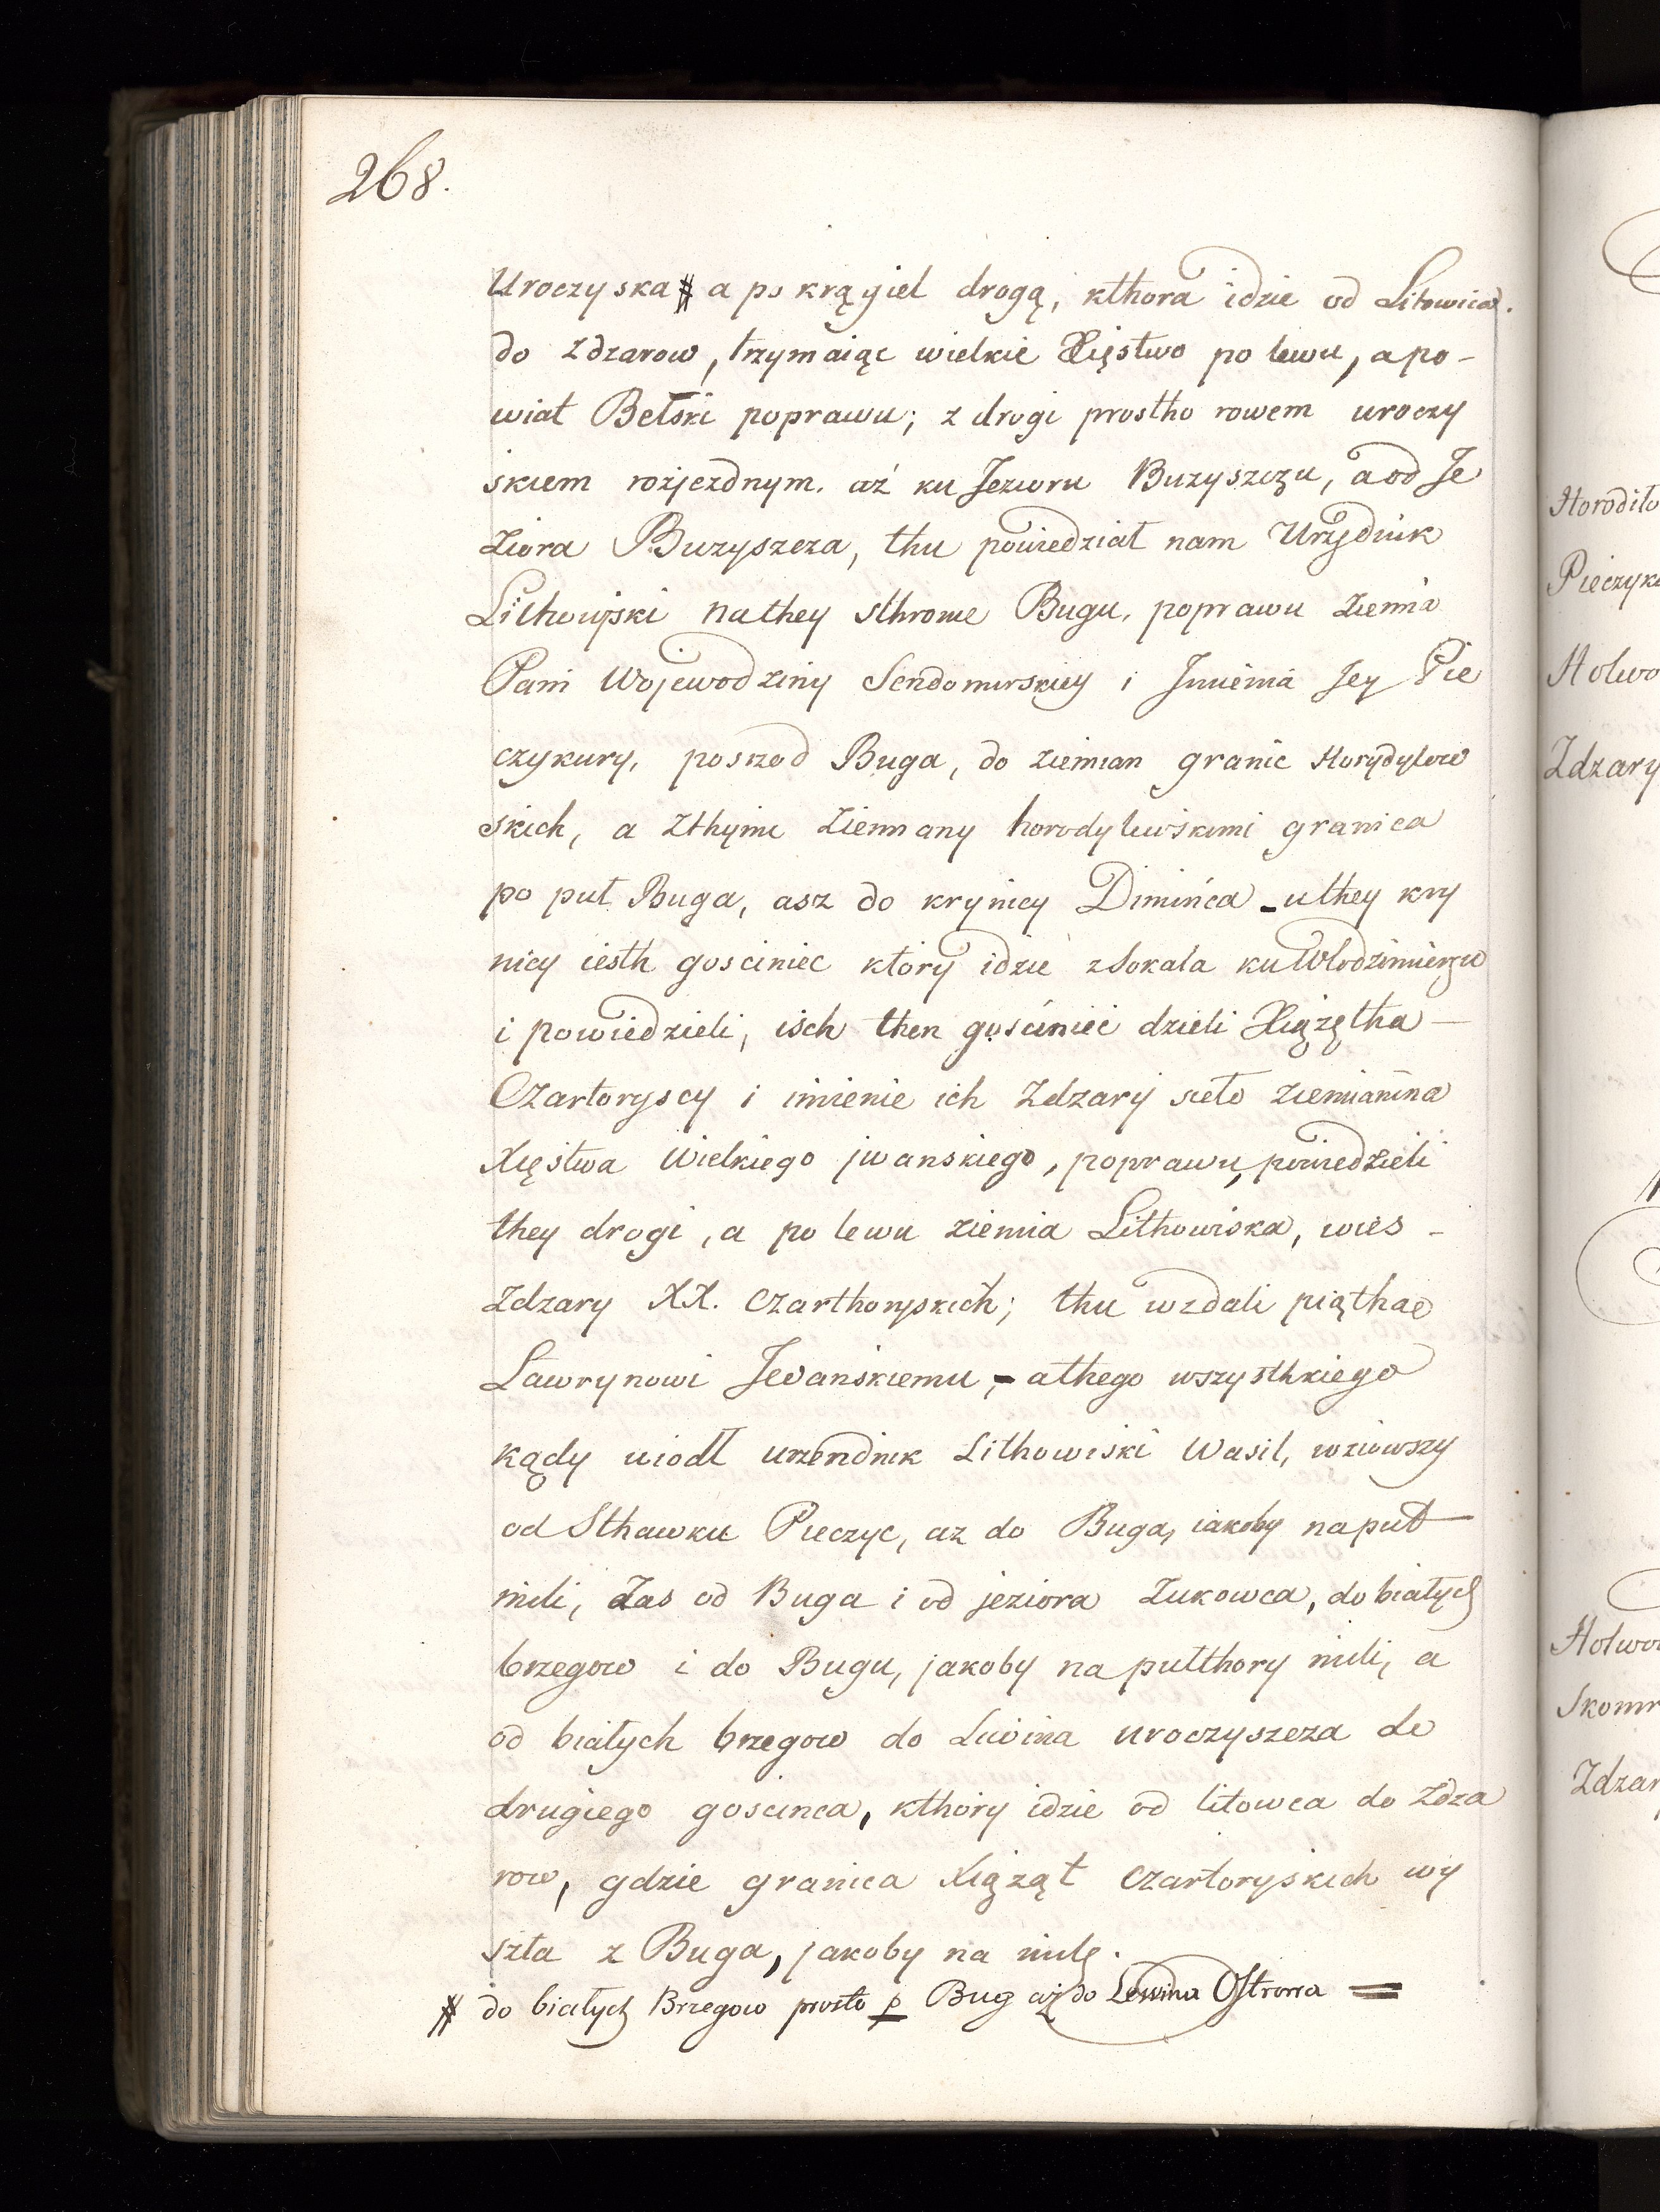 268.
Uroczyska # a po krągiel drogą, kthora idzie od Litowica.
do Zdzarow, trzymaiąc wielkie Xięstwo po lewu, a po-
wiat Bełski poprawu; z drogi prostho rowem uroczy
skiem rozjezdnym. aż ku Jezioru Buzyszczu, a od Je
ziora Buzyszcza, thu powiedział nam Urzędnik
Lithowiski na they sthronie Bugu, poprawu ziemia
Pani Wojewodziny Sendomirskiey i Jmienia Jey Pie
czykury, poszrod Buga, do ziemian granic Horydylow
skich, a zthymi ziemiany horodylewskimi granica
po puł Buga, asz do krynicy Diminca - u they kry
nicy iesth gosciniec który idzie z Sokala ku Włodzimierzu
i powiedzieli, isch then gościniec dzieli Xiązętha -
Czartoryscy i imienie ich Zdzary sieło ziemianina
Xięstwa Wielkiego jwanskiego, poprawu, powiedzieli
they drogi, a po lewu ziemia Lithowiska, wies -
Zdzary XX. Czarthoryskich; thu wzdali piąthae
Lawrynowi Jevanskiemu, - a thego wszysthkiego
kądy wiodł urzendnik Lithowiski Wasil, wziowszy
od Sthawku Pieczyc, az do Buga, iakoby na puł
mili, Zas od Buga i od jeziora Zukowca, do białych
brzegow i do Bugu, jakoby na pułthory mili, a
od białych brzegow do Liwina uroczyszcza do
drugiego goscinca, kthory idzie od litowca do Zdza
row, gdzie granica Xiążąt Czartoryskich wy
szła z Buga, jakoby na milę.
# do białych Brzegow prosto p Bug aż do Lewina Ostrowa =
Horodiło
Pieczyk
Holwo
Zdzary
Hołwo
Skomr
Zdzar